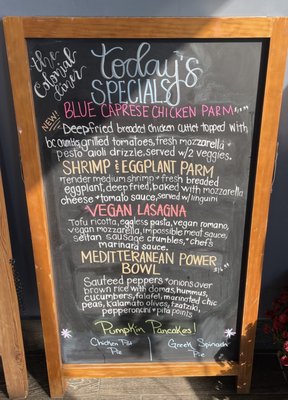 the Colonial Diner
today's
SPECIALS
NEW!
BLUE CAPRESE CHICKEN PARM
Deepfried breaded chicken cutlet topped with
grilled tomatoes, fresh mozzarella +
pesto aioli drizzle, served w/2 veggies.
SHRIMP & EGGPLANT PARM
Tender medium shrimp + fresh breaded
eggplant, deep fried, baked with mozzarella
cheese + tomato sauce, served w/linguini
VEGAN LASAGNA
Tofu ricotta, eggless pasta, vegan romano,
vegan mozzarella, impossible meat sauce,
seitan sausage crumbles, + chef's
marinara sauce.
MEDITTERANEAN POWER
BOWL
Sauteed peppers + onions over
brown rice with domas, hummus,
cucumbers, falafel, marinated chic
peas, kalamata olives, tzatziki,
pepperoncini + pita points
Pumpkin Pancakes!
Chicken Pot
Pie
Greek Spinach
Pie